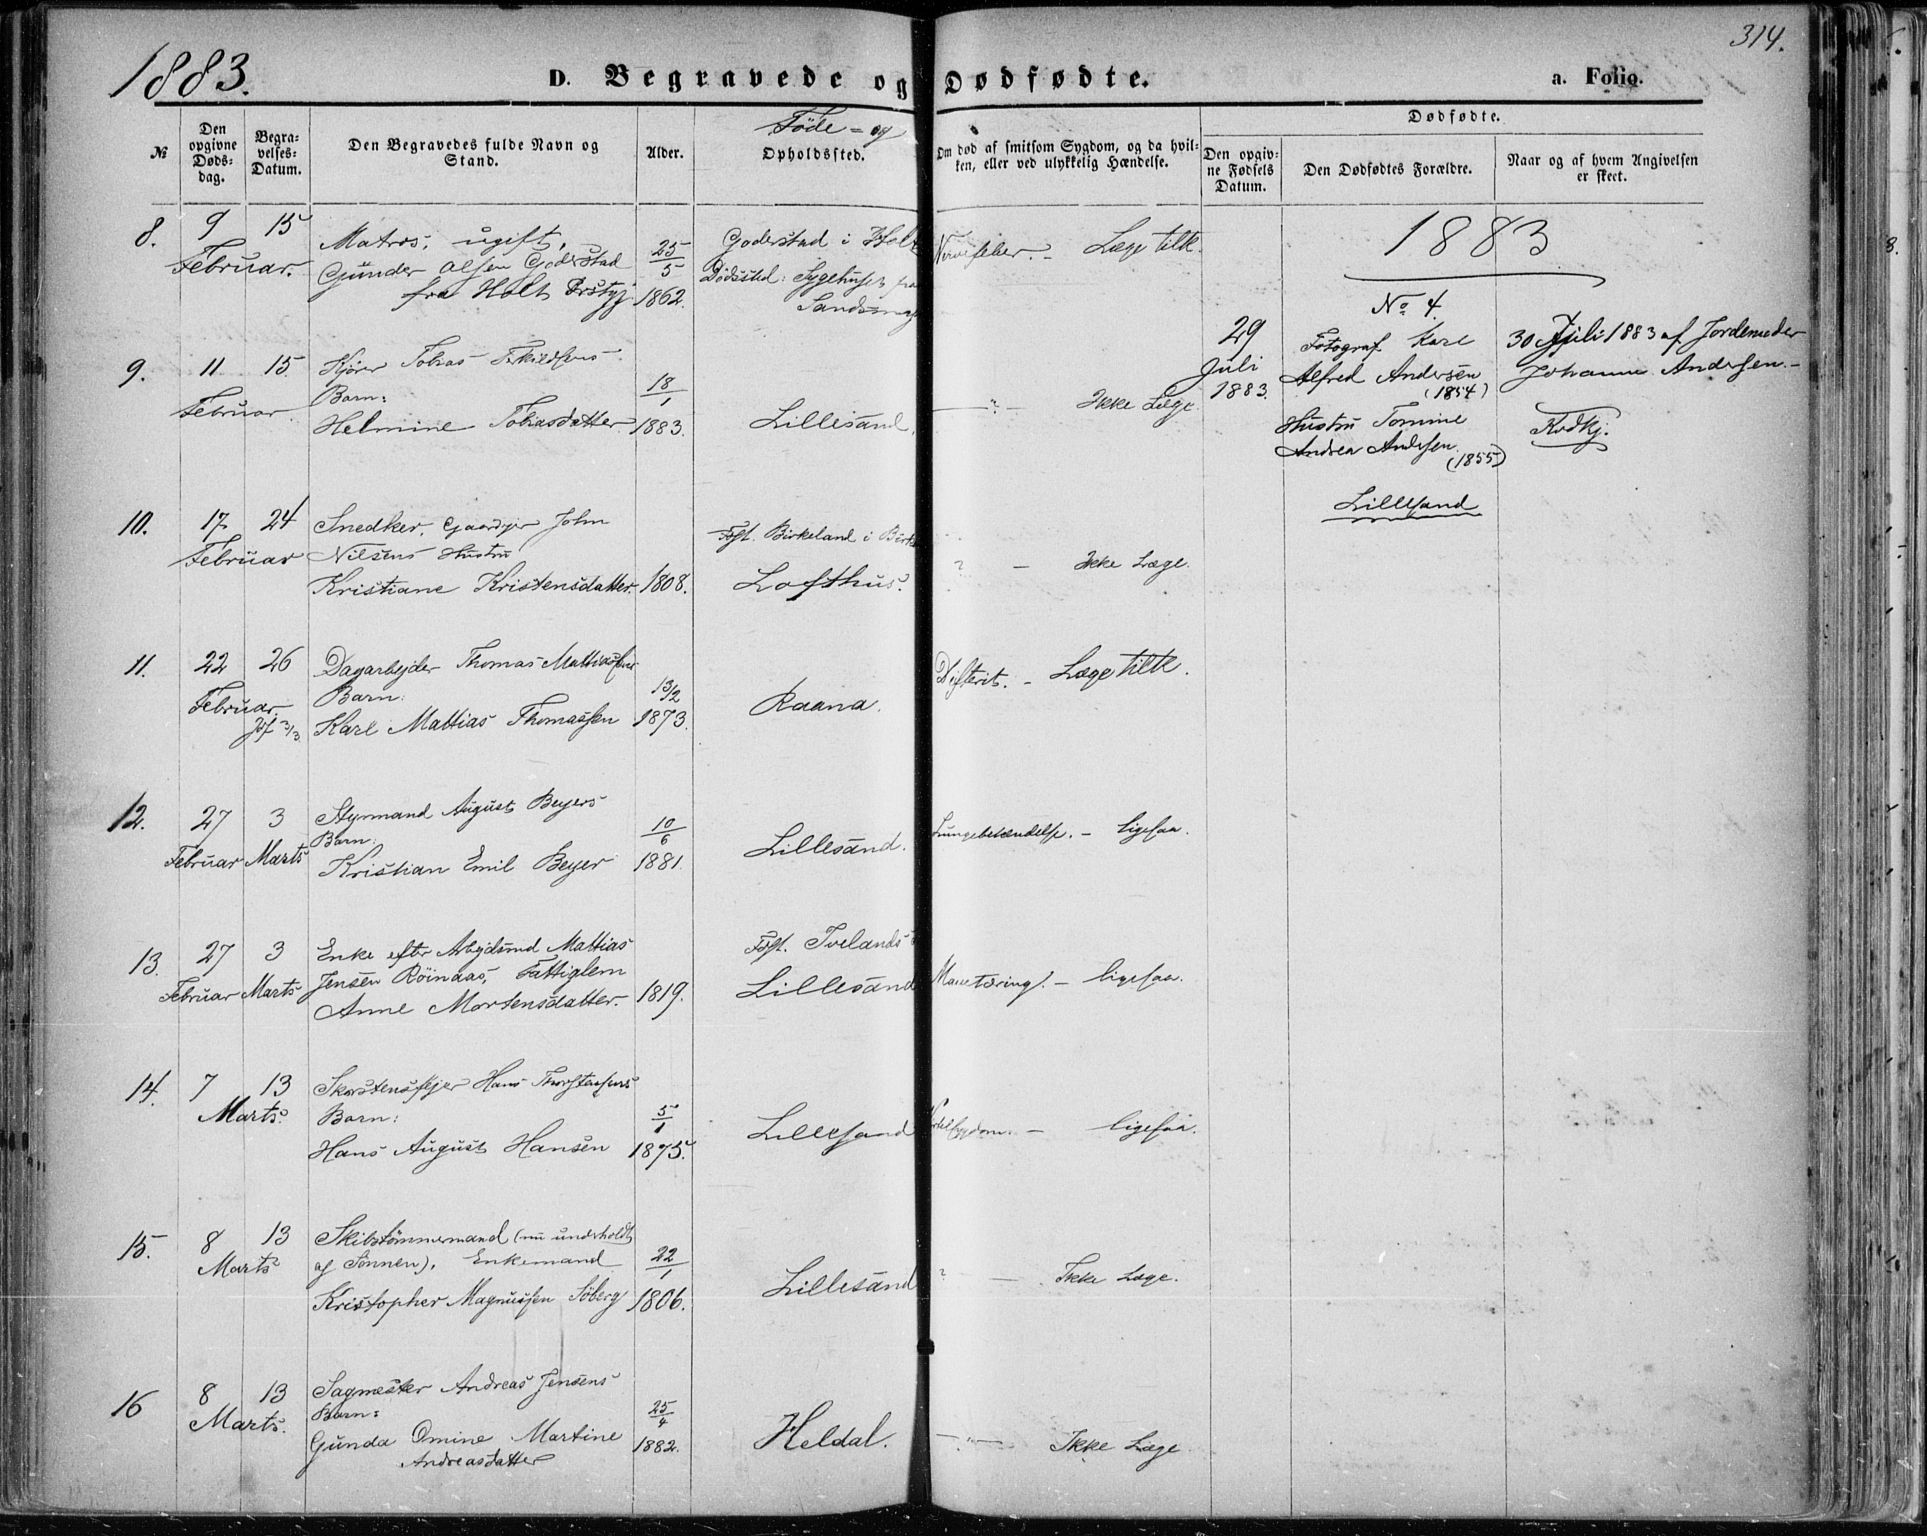 1883.
D. Begravede og Dødfødte.
a. Folio.
314.
№
Den opgivne Døds-dag.
Begra-velses-Datum.
Den Begravedes fulde Navn og Stand.
Alder.
Føde- og
Opholdssted.
Om død af smitsom Sygdom, og da hvil-ken, eller ved ulykkelig Hændelse.
Dødfødte.
Den opgiv-ne Fødsels Datum.
Den Dødfødtes Forældre.
Naar og af hvem Angivelsen er skeet.
8.
9
15
Februar.
Matros, ugift,
Gunder Olsen Goderstad
fra Holt Prstgj.
25/5
1862.
Goderstad i Holt
Dødsstad: Sygehuset paa
Nervefeber. - Læge tilk.
9.
11.
15.
Februar.
Kjører Tobias Terkildsens
Barn:
Helmine Tobiasdatter.
18/1
1883.
Lillesand.
—"— Ikke Læge
10.
17.
24
Februar
Snedker, Gaardejer John
Nilsens Hustru
Kristiane Kristensdatter.
1808.
Fsst. Birkeland i Birke
Lofthus.
? — Ikke Læge.
11.
22
26
Februar.
Jöf 3/3
Dagarbejder Thomas Mattiassens
Barn:
Karl Mattias Thomassen
13/2
1873.
Raana.
Difterit. - Læge tilk.
12.
27
3
Februar Marts
Styrmand August Beyers
Barn:
Kristian Emil Beyer
10/6
1881.
Lillesand.
Lungebetændelse. - ligesaa.
13.
27
3
Februar Marts
Enke efter Arbejdsmd Mattias
Jensen Röinaas, Fattiglem
Anne Mortensdatter.
1819.
Fsst. Tvelands
Lillesand
Mavetæring. - ligesaa.
14.
7
13
Marts.
Skorstensfejer Hans Thorstensens
Barn:
Hans August Hansen
5/1
1875.
Lillesand
Kirtelsygdom. - ligesaa.
15.
8
13
Marts
Skibstømmermand (nu underholdt
af Sønnen), Enkemand
Kristopher Magnussen Söberg
22/1
1806.
Lillesand
? — Ikke Læge.
16
8
13
Marts.
Sagmester Andreas Jensens
Barn:
Gunda Omine Martine
Andreasdatter
25/4
1882.
Heldal.
—"— Ikke Læge
1883
No 4.
29
Juli
1883.
Fotograf Karl
Alfred Andersen
(1854)
Hustru Tomine
Andrea Andersen
(1855)
Lillesand
30 Juli 1883 af Jordemoder
Johanne Andersen.-